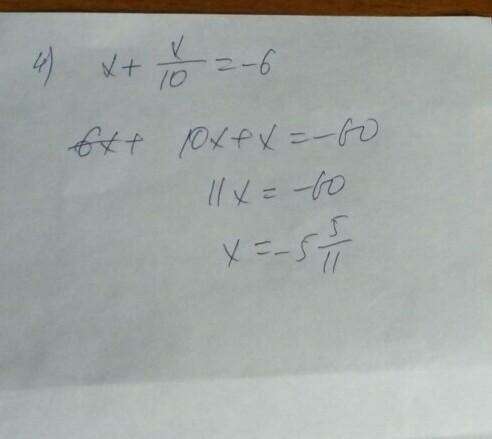 4) x + x/10 = -6
6x+ 10x+x = -60
11x = -60
x = -5 5/11